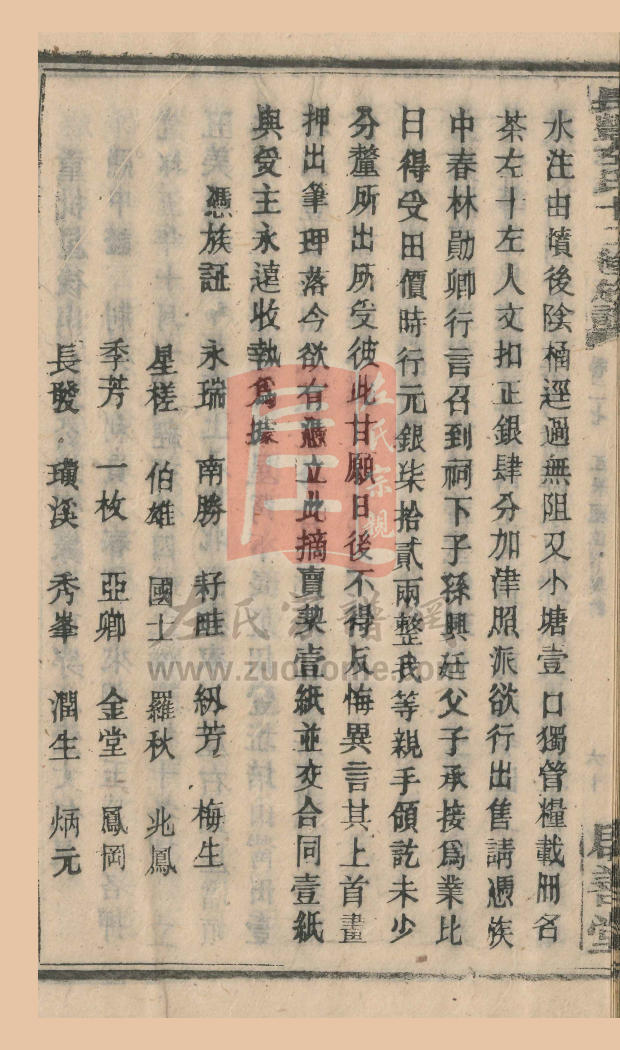 水注由墳後陰桶逕過無阻又小塘壹口獨管糧載册名
茶左十左人文扣正銀肆分加津照派欲行出售請憑族
中春林勛卿行言召到祠下子孫興廷父子承接爲業比
日得受田價時行元銀柒拾貳兩整我等親手領訖未少
分釐所出所受彼此甘願日後不得反悔異言其上首畫
押出筆押落今欲有憑立此摘賣契壹紙並交合同壹紙
與受主永遠收執爲據
憑族証 永瑞 南勝 籽畦 紉芳 梅生
星槎 伯雄 國士 羅秋 兆鳳
季芳 一枚 亞卿 金堂 鳳岡
長發 瓊溪 秀峯 潤生 炳元
左氏宗親
左氏宗譜網
www.zuohome.com